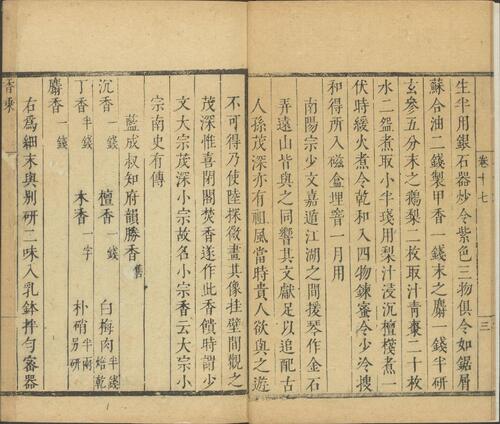 生半用銀石器炒令紫色三物俱令如鋸屑
蘇合油二錢製甲香一錢末之麝一錢半研
玄參五分末之鵝梨二枚取汁青棗二十枚
水二盌煮取小半琖用梨汁浸沉檀檅煮一
伏時緩火煮令乾和入四物鍊蜜令少冷搜
和得所入磁盒埋窨一月用
南陽宗少文嘉遁江湖之間援琴作金石
弄遠山皆與之同響其文獻足以追配古
人孫茂深亦有祖風當時貴人欲與之遊
卷十七
三
不可得乃使陸探微畫其像挂壁間觀之
茂深惟喜閉閣焚香遂作此香饋時謂少
文大宗茂深小宗故名小宗香云大宗小
宗南史有傳
藍成叔知府韻勝香 舊
沉香 一錢 檀香 一錢 白梅肉 半錢焙乾
丁香 半錢 木香 一字 朴硝 半兩另研
麝香 一錢
右爲細末與別研二味入乳鉢拌勻密器
香乘